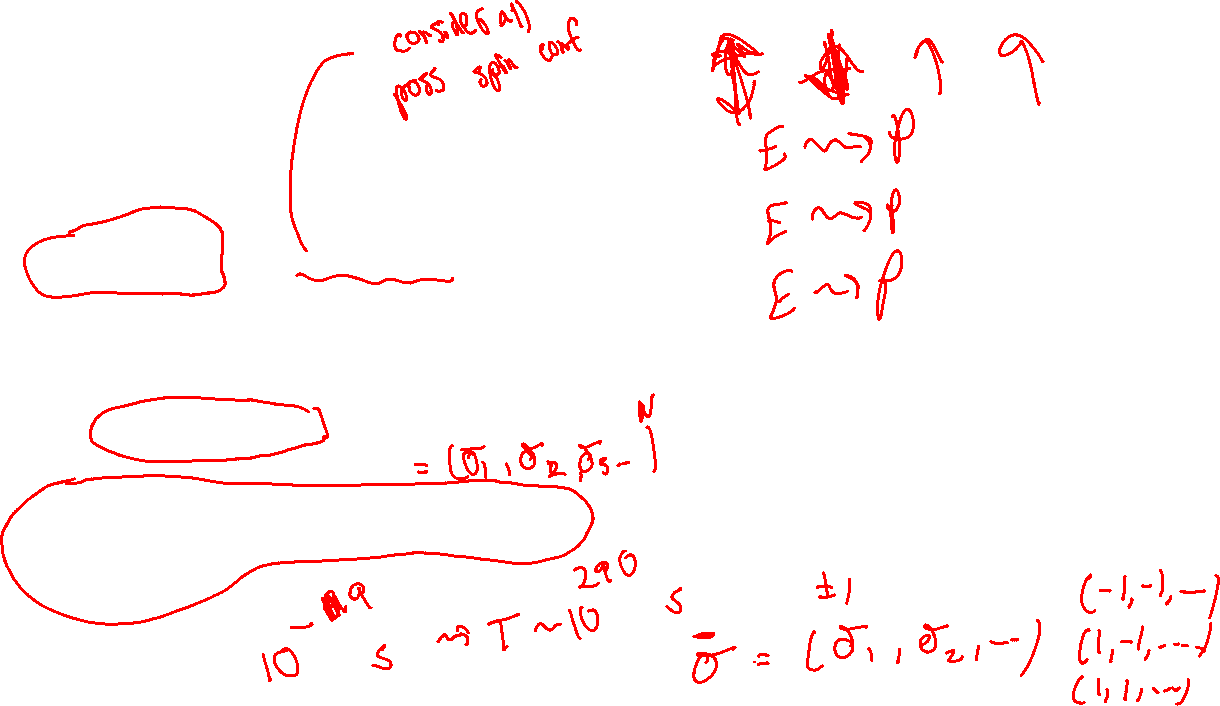 consider all
poss spin conf
E ⇝ P
E ⇝ P
E ⇝ P
N
= (σ₁, σ₂ σ₃ --)
10⁻⁹ s ⇝ T ~ 10²⁹⁰ s
±1
σ̄ = (σ₁, σ₂, --)
(-1, -1, --)
(1, -1, ----)
(1, 1, --)